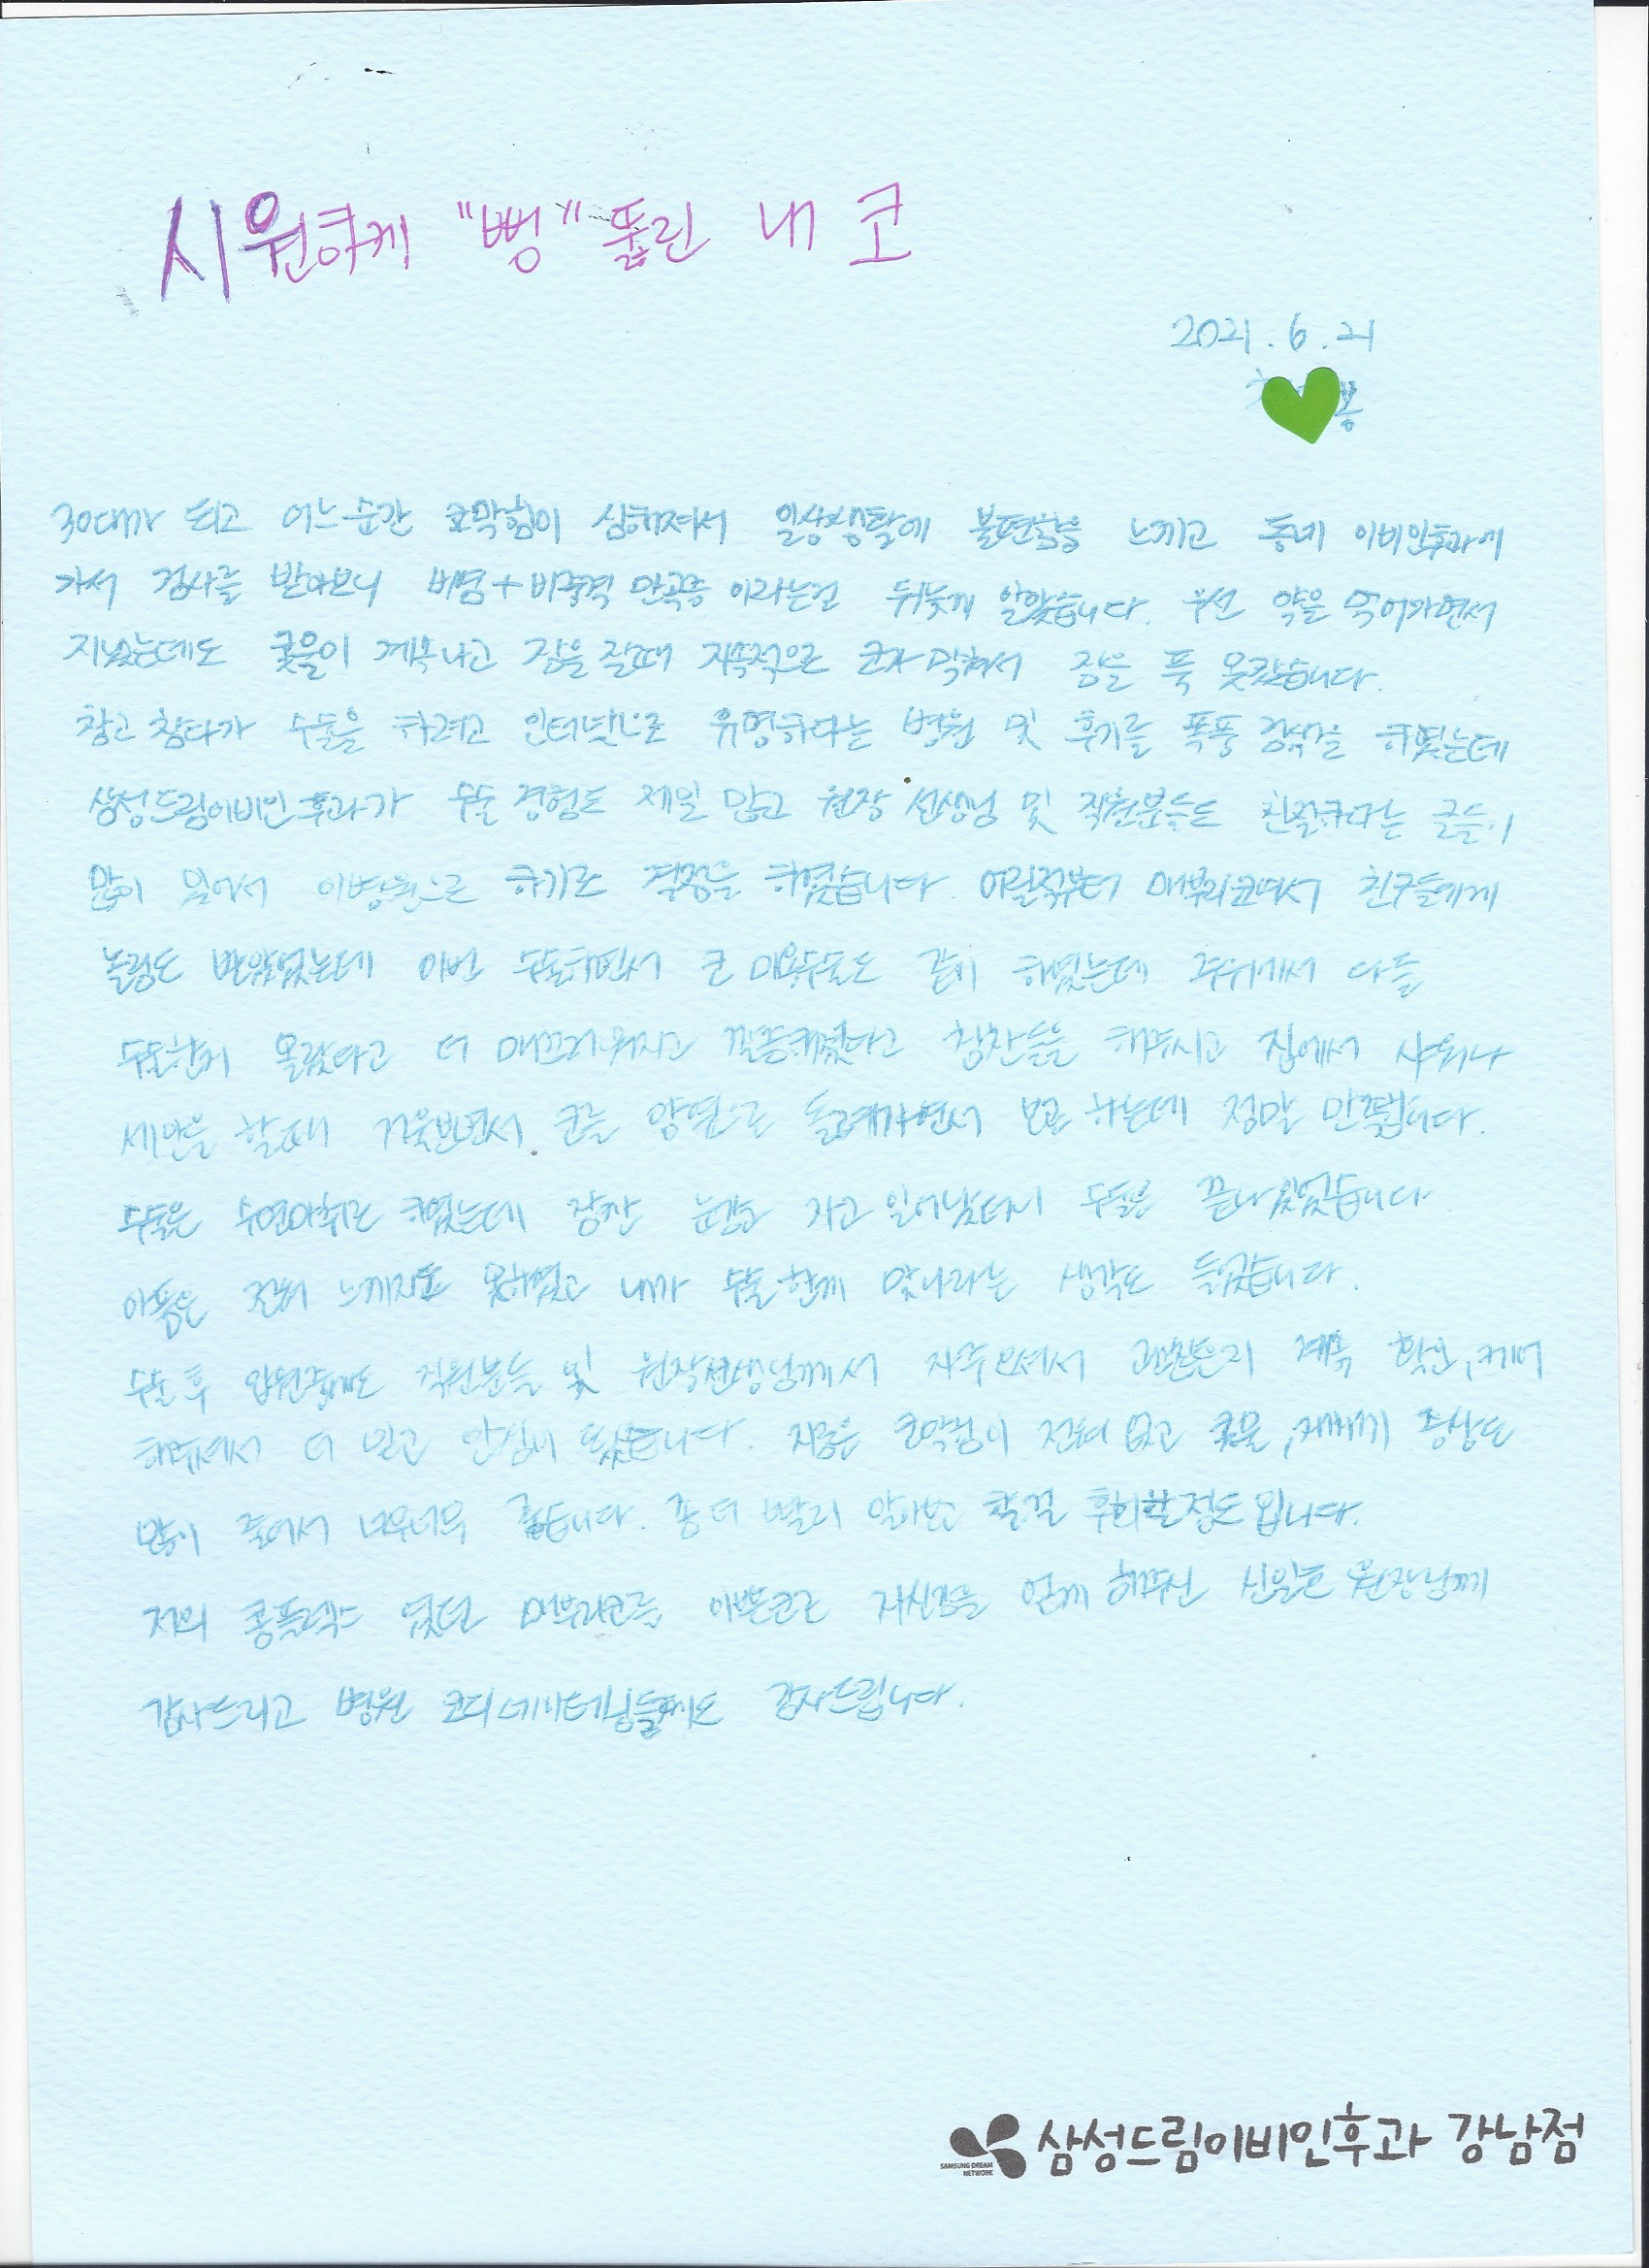 시원하게 "뻥" 뚫린 내 코
2021. 6. 21
봉
30대가 되고 어느순간 코막힘이 심해져서 일상생활에 불편함을 느끼고 동네 이비인후과에
가서 검사를 받아보니 비염+비중격 만곡증 이라는걸 뒤늦게 알았습니다. 우선 약을 먹어가면서
지냈는데도 콧물이 계속나고 잠을 잘때 지속적으로 코가 막혀서 잠을 푹 못잤습니다.
참고 참다가 수술을 하려고 인터넷으로 유명하다는 병원 및 후기를 폭풍 검색을 하였는데
삼성드림이비인후과가 수술 경험도 제일 많고 원장 선생님 및 직원분들도 친절하다는 글들이
많이 있어서 이병원으로 하기로 결정을 하였습니다. 어릴적부터 매부리코여서 친구들에게
놀림도 받았었는데 이번 수술하면서 코 미용수술도 같이 하였는데 주위에서 다들
수술한게 몰랐다고 더 매끄러워지고 깔끔해졌다고 칭찬들을 해주시고 집에서 샤워나
세안을 할때 거울보면서 코를 양옆으로 돌려가면서 보곤 하는데 정말 만족합니다.
수술은 수면마취로 하였는데 잠깐 눈감고 자고 일어났더니 수술은 끝나있었습니다
아픔은 전혀 느끼지도 못하였고 내가 수술한게 맞나라는 생각도 들었습니다.
수술 후 입원중에도 직원분들 및 원장선생님께서 자주오셔서 괜찮은지 계속 확인, 케어
해주셔서 더 믿고 안심이 되었습니다. 지금은 코막힘이 전혀 없고 콧물, 재채기 증상도
많이 줄어서 너무너무 좋습니다. 좀 더 빨리 알아보고 할걸 후회할정도 입니다.
저의 콤플렉스 였던 매부리코를 이쁜코로 자신감을 얻게 해주신 신일호 원장님께
감사드리고 병원 코디네이터님들께도 감사드립니다.
SAMSUNG DREAM
NETWORK
삼성드림이비인후과 강남점